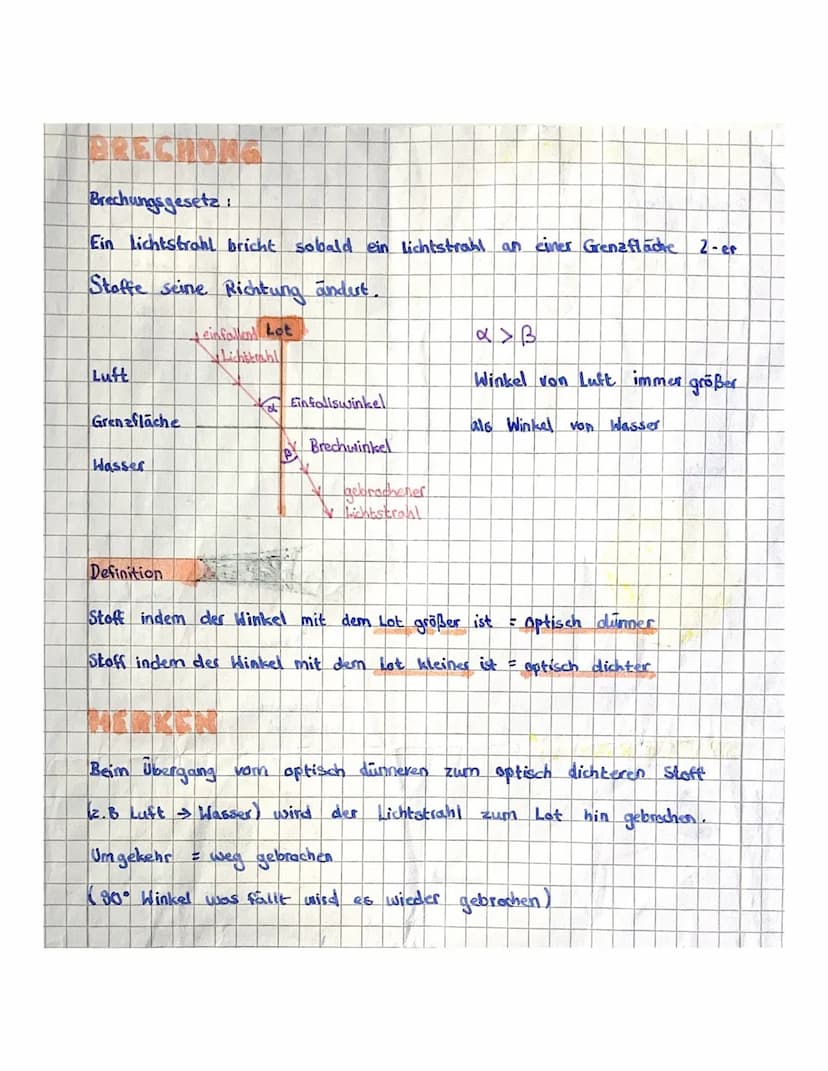 BRECHUNG
Brechungsgesetz :
Ein Lichtstrahl bricht sobald ein Lichtstrahl an einer Grenzfläche 2-er
Stoffe seine Richtung ändert.
einfallend Lot
Lichtstrahl
α > β
Luft
Winkel von Luft immer größer
α Einfallswinkel
Grenzfläche
als Winkel von Wasser
β Brechwinkel
Wasser
gebrochener
Lichtstrahl
Definition
Stoff indem der Winkel mit dem Lot größer ist = optisch dünner
Stoff indem der Winkel mit dem Lot kleiner ist = optisch dichter
MERKEN
Beim Übergang vom optisch dünneren zum optisch dichteren Stoff
(z.B Luft → Wasser) wird der Lichtstrahl zum Lot hin gebrochen.
Umgekehr = weg gebrochen
(90° Winkel was fällt wird es wieder gebrochen)